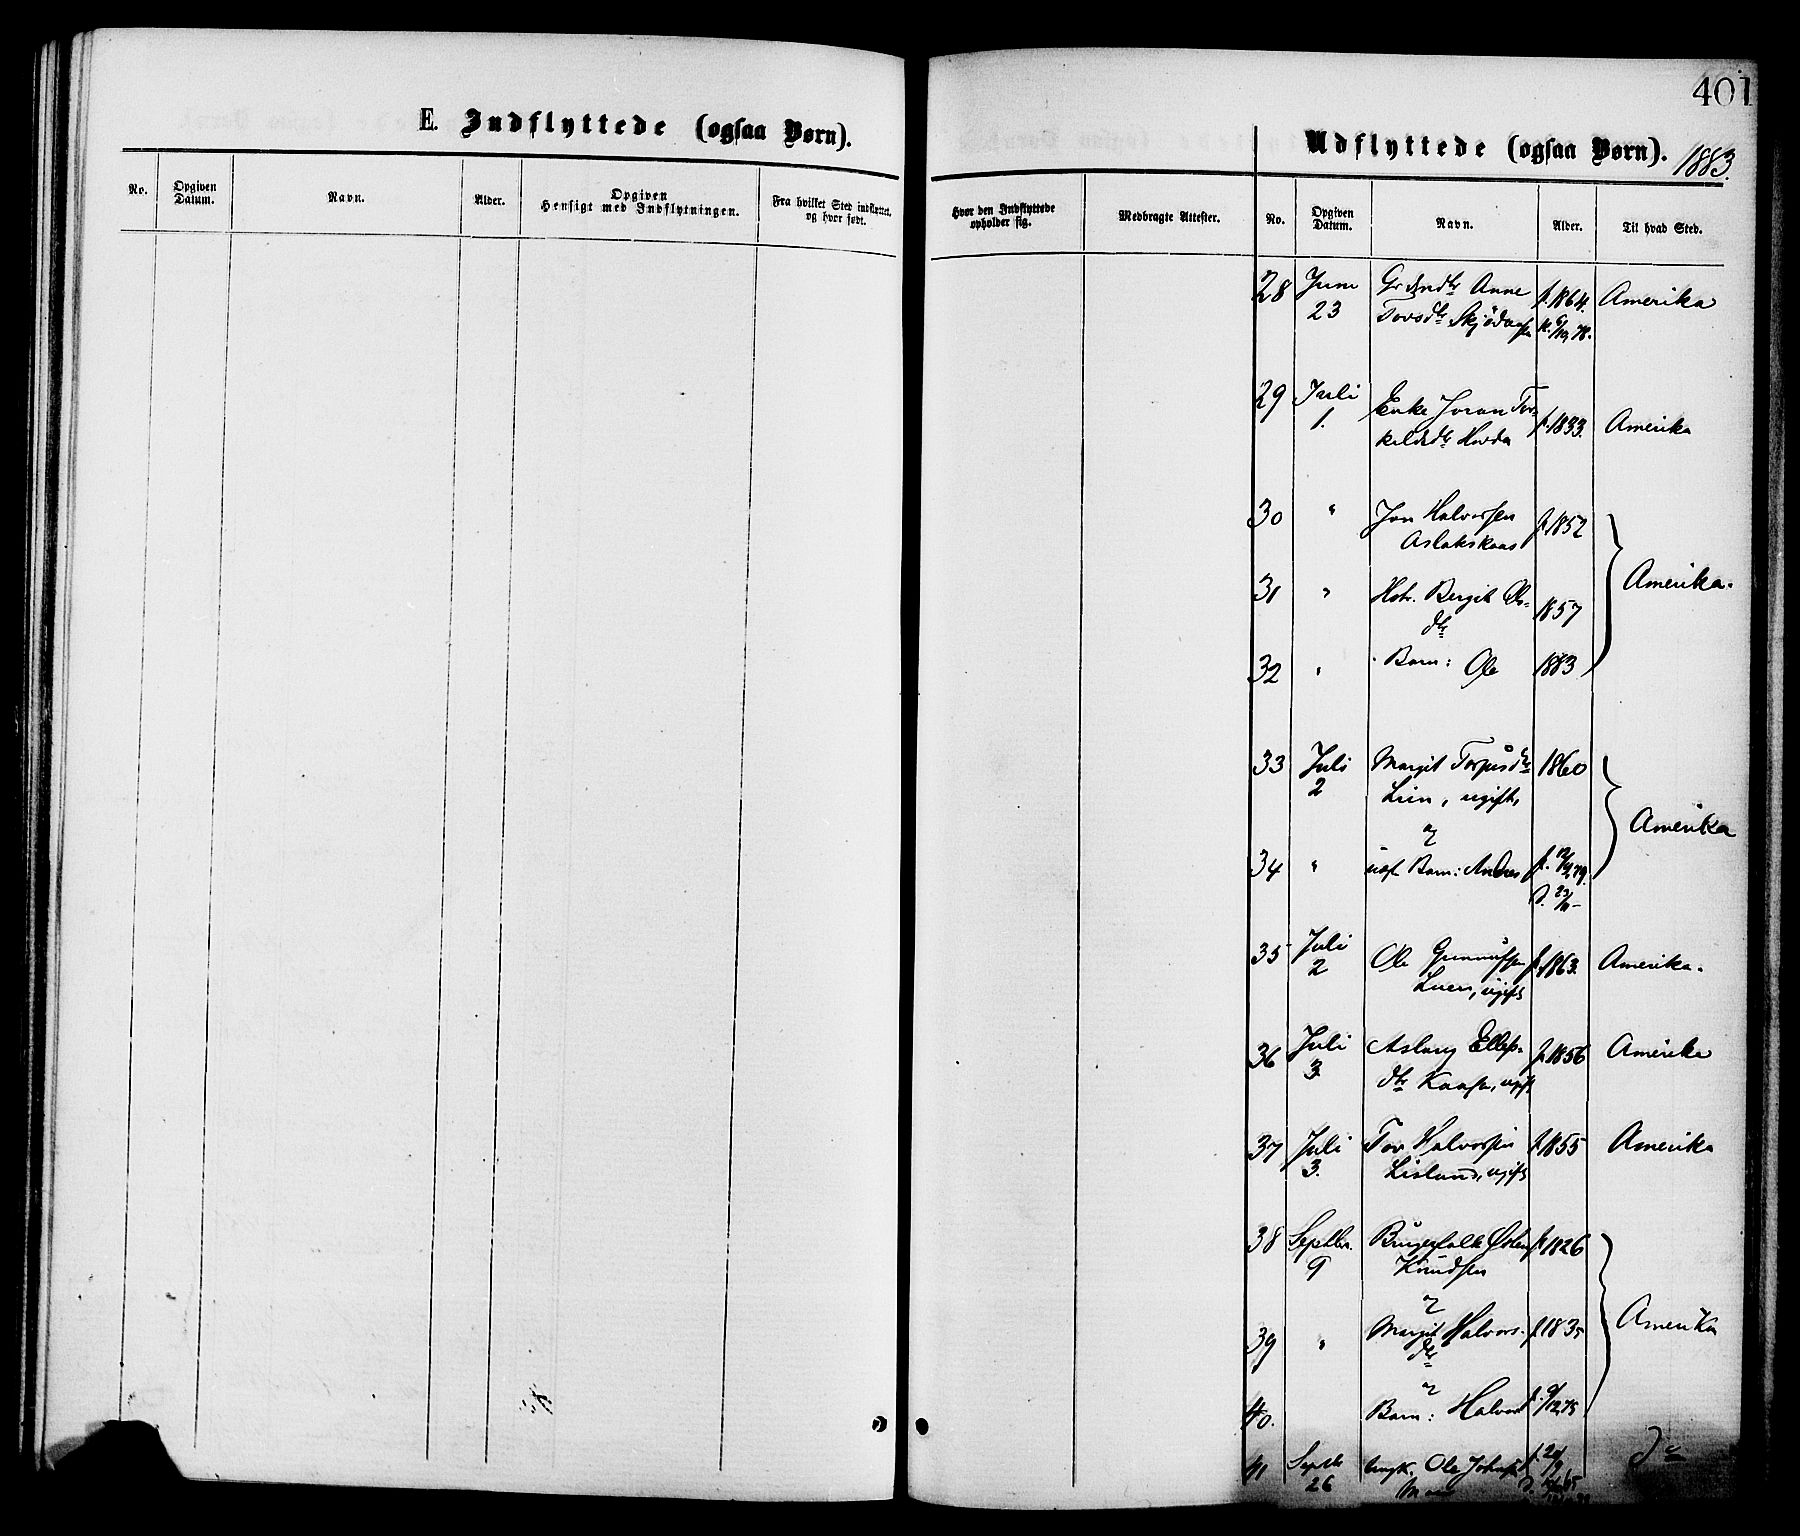 401
E. Indflyttede (ogsaa Børn).
No.
Opgiven Datum.
Navn.
Alder.
Opgiven Hensigt med Indflytningen.
Fra hvilket Sted indflyttet, og hvor født.
Udflyttede (ogsaa Børn). 1883.
Hvor den Indflyttede opholder sig.
Medbragte Attester.
No.
Opgiven Datum.
Navn.
Alder.
Til hvad Sted.
28 Juni Anne f. 1864. Amerika
23 Tovsdtr
29 Juli Enke Joran Tor- f. 1833. Amerika
1. kildsdtr Hovda
30 " Jon Halvorsen f. 1852
Aslakskaas
Amerika.
31 " Hstr. Bergit Ols- 1857
dtr
32 " Barn: Ole 1883
33 Juli Margit Torjusdtr 1860
2 Lien, ugift,
og
Amerika
34 " Barn: Andres f. 12/4, 79.
35 Juli Ole f. 1863. Amerika.
2 Lien, ugift
36 Juli Aslaug Ellefs- f. 1856 Amerika
3. dtr Kaasa, ugift
37 Juli Tov Halvorsen f. 1855 Amerika
3. Lisland, ugift
38 Septbr. Brugerfolk Østen f. 1826
9 Knudsen
og
39 " Margit Halvors- f. 1835 Amerika
dtr
og
40. Barn: Halvor f. 9/12, 75
41 Septbr ungk. Ole Johns do
26